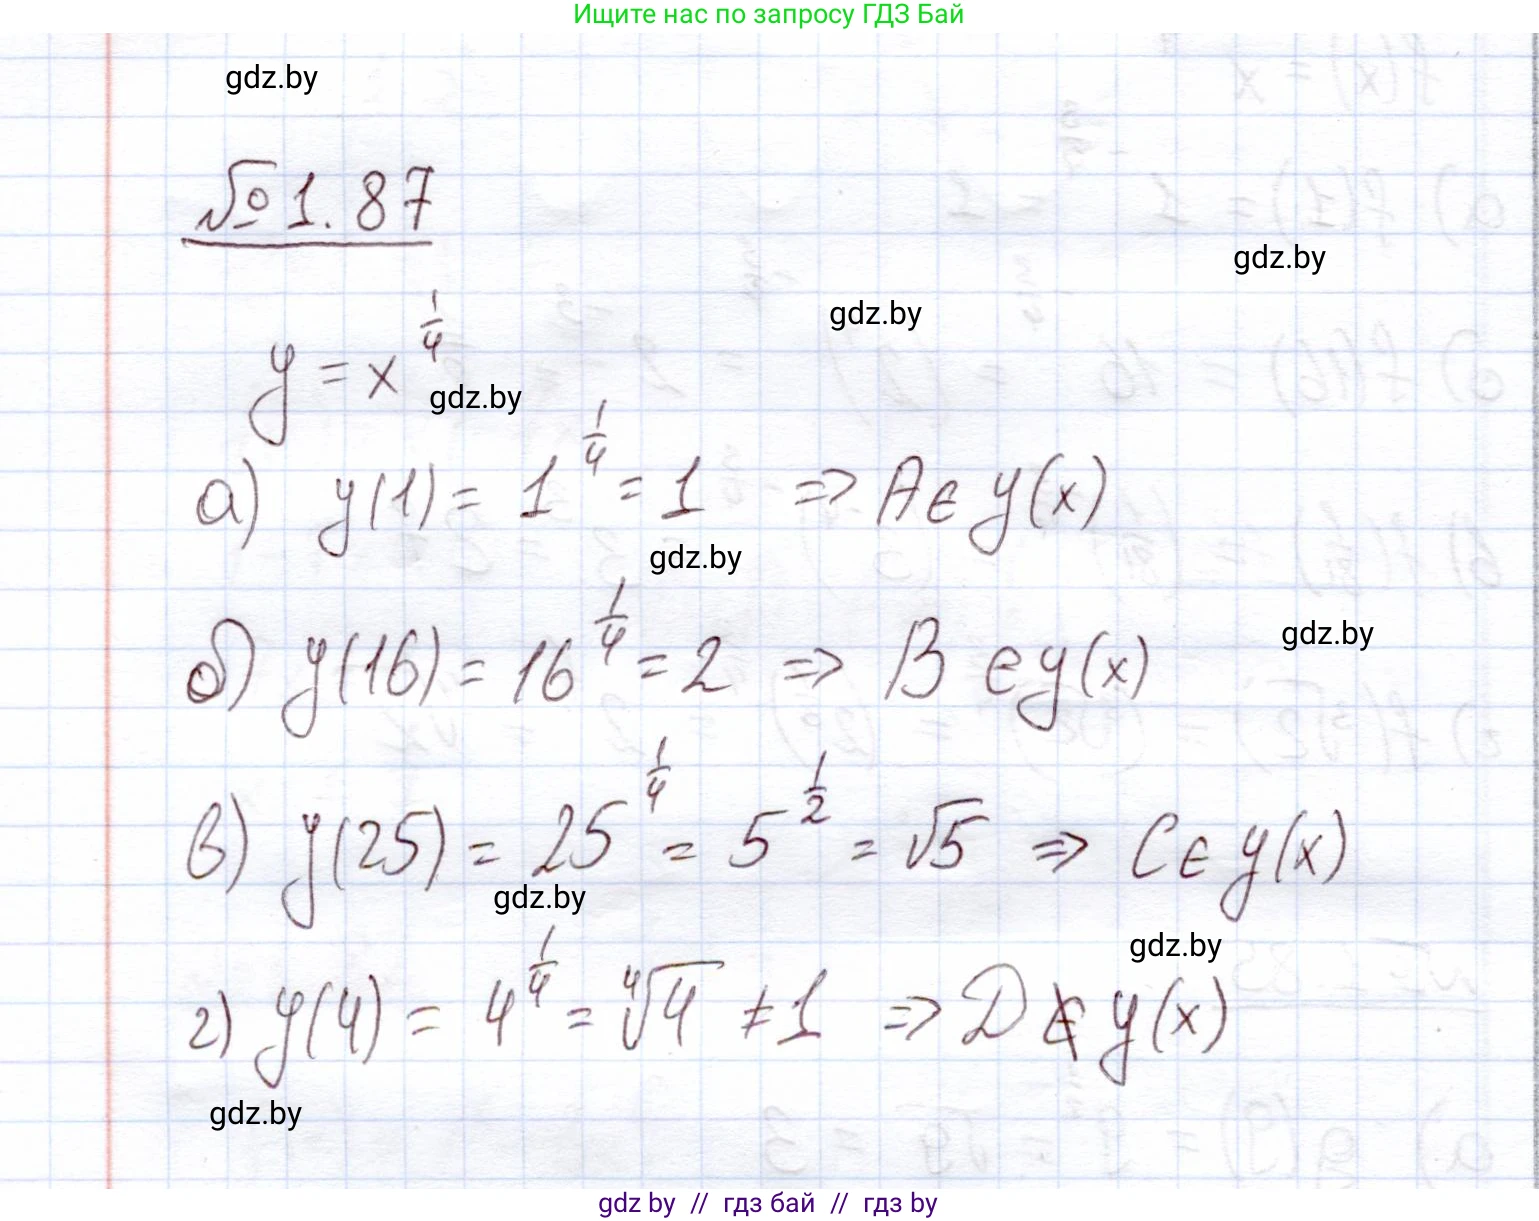 Ищите нас по запросу ГДЗ Бай
gdz.by
№ 1.87
gdz.by
gdz.by
y = x^{1/4}
gdz.by
а) y(1) = 1^{1/4} = 1 => A ∈ y(x)
gdz.by
б) y(16) = 16^{1/4} = 2 => B ∈ y(x)
gdz.by
в) y(25) = 25^{1/4} = 5^{1/2} = √5 => C ∈ y(x)
gdz.by
gdz.by
г) y(4) = 4^{1/4} = ∜4 ≠ 1 => D ∉ y(x)
gdz.by
gdz by // гдз бай // гдз by